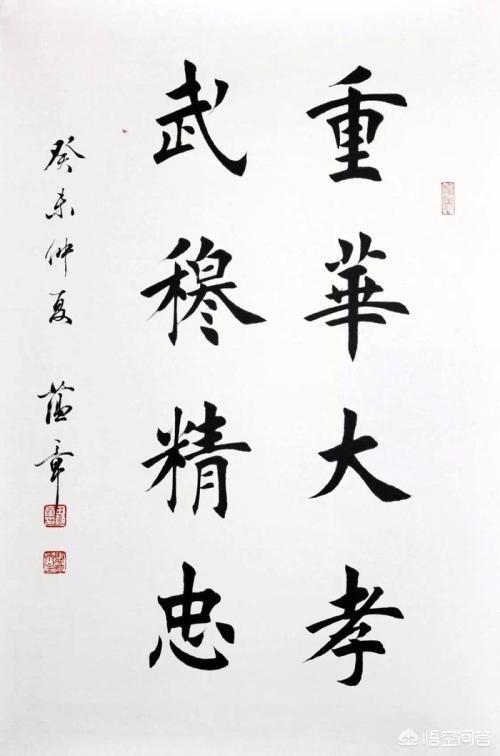 重華大孝
武穆精忠
癸未仲夏 蕴章
悟空问答